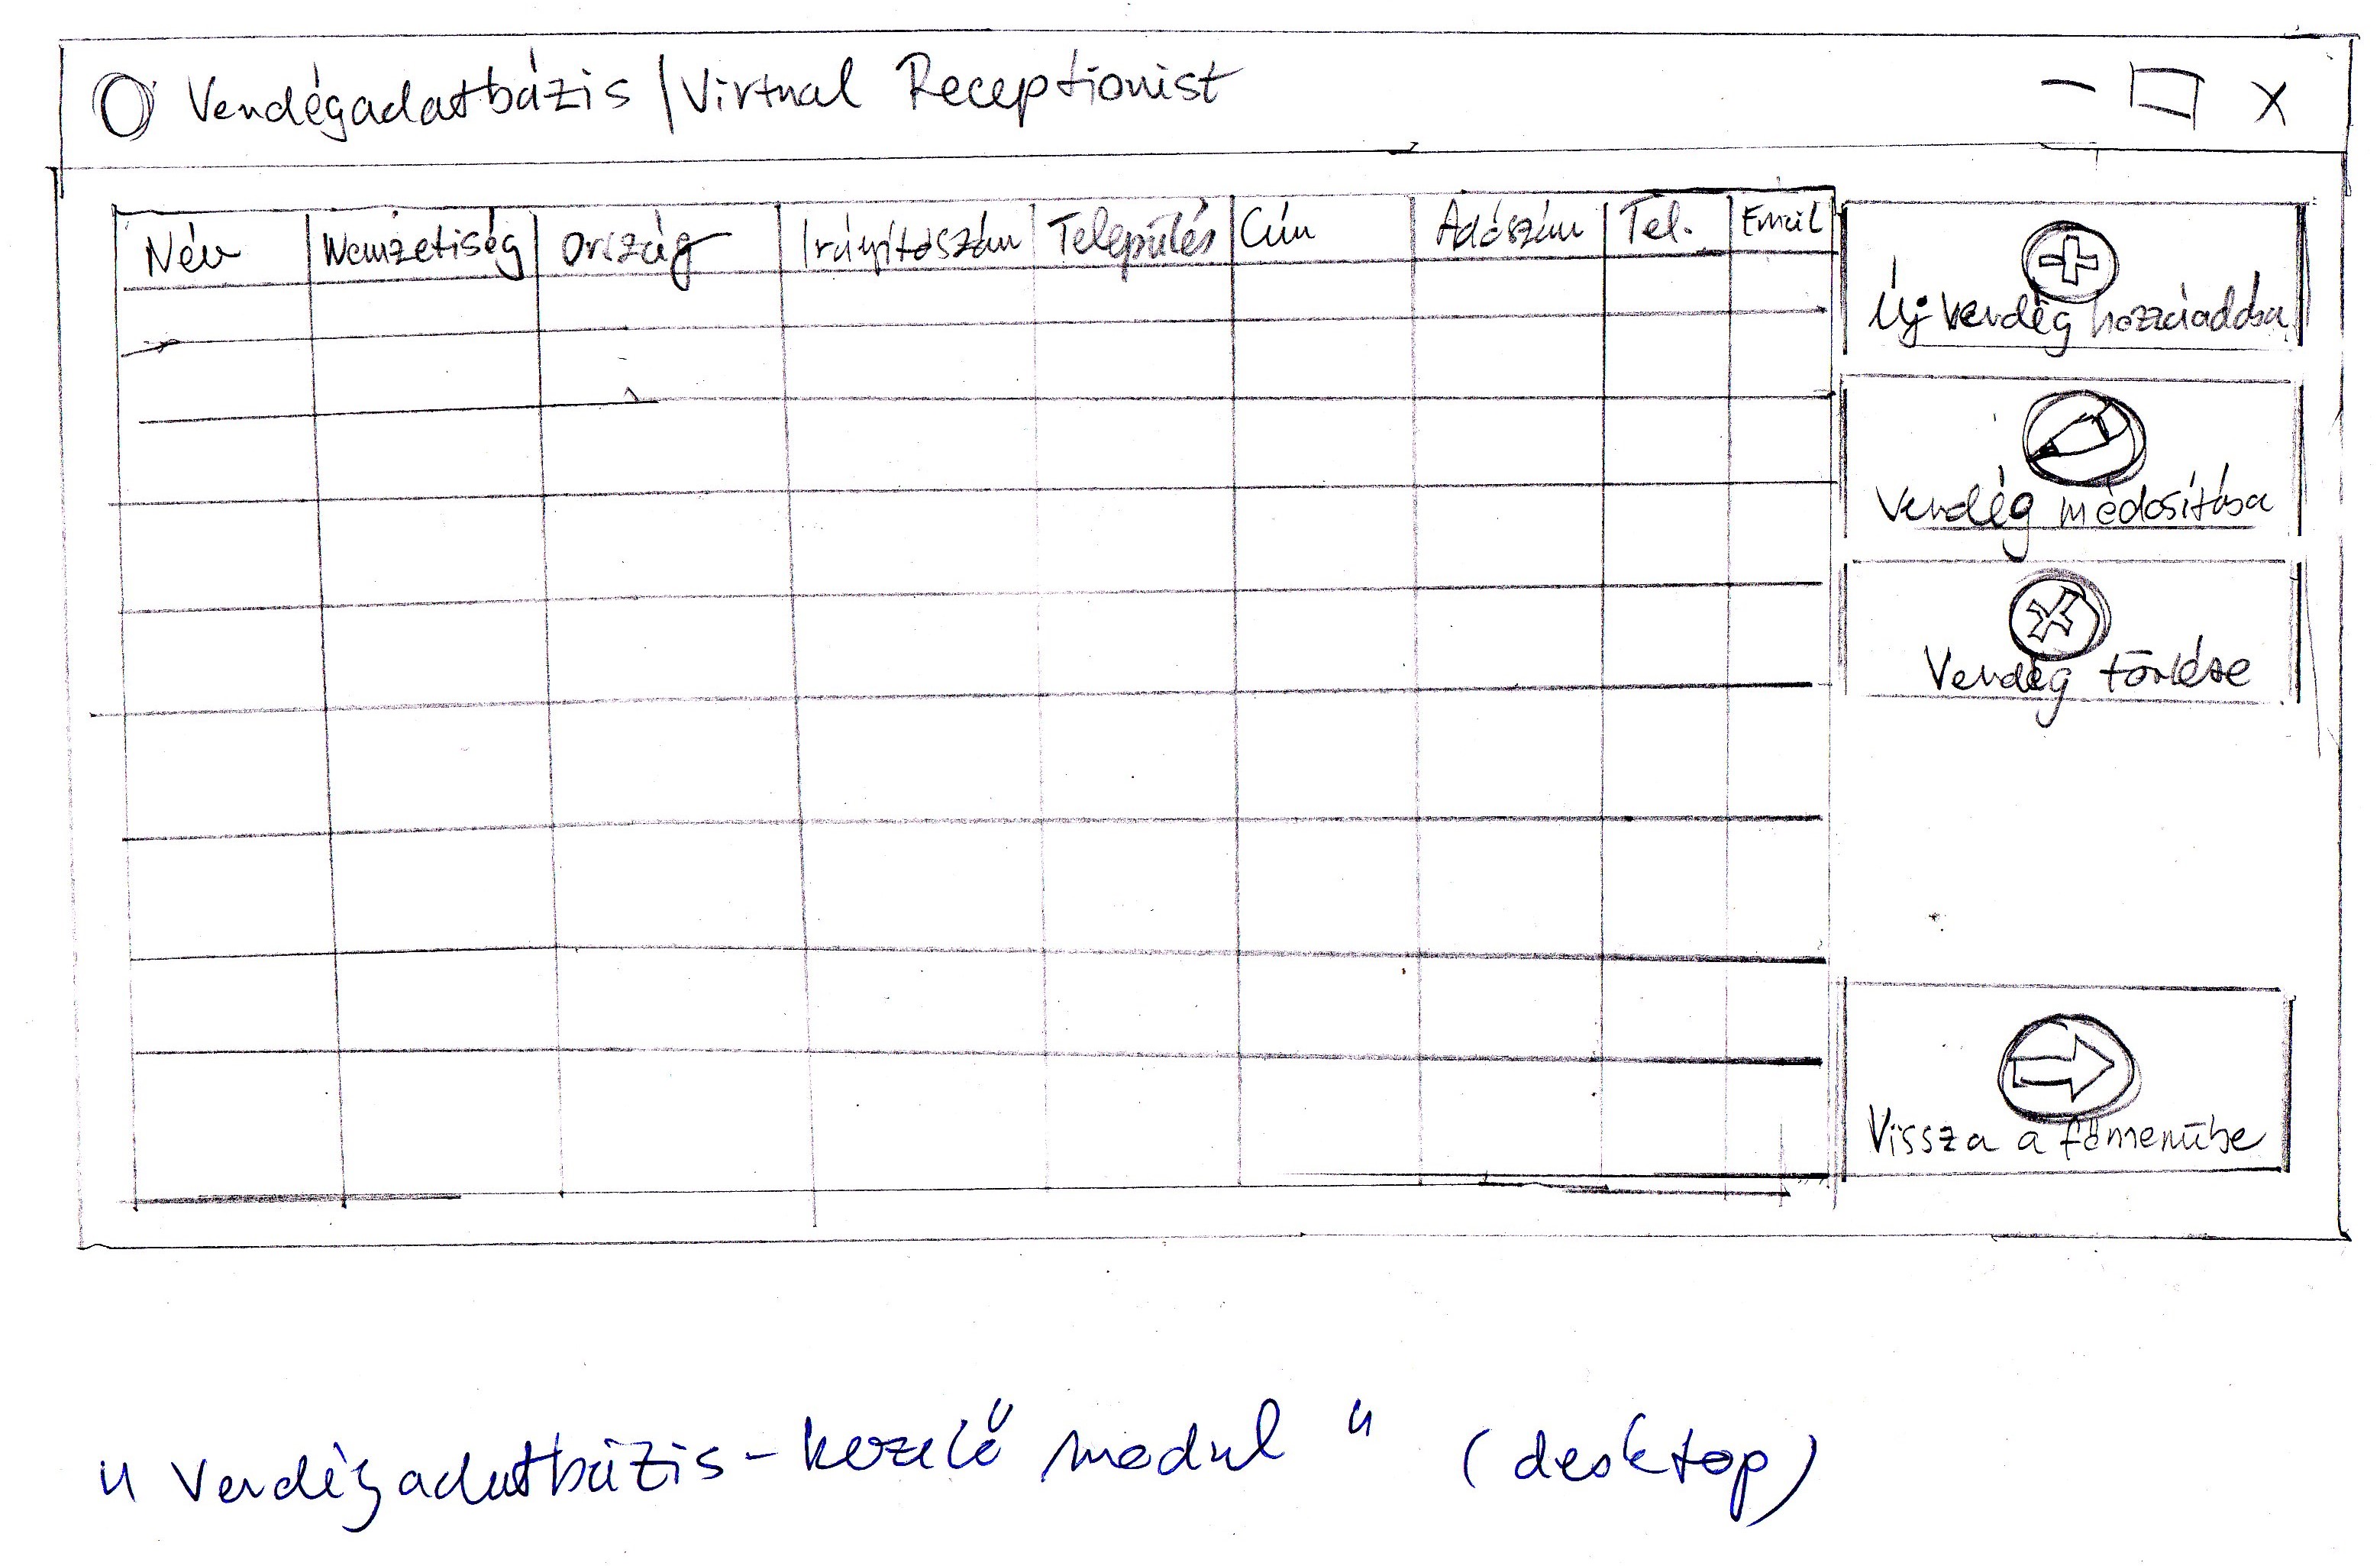 Vendégadatbázis | Virtual Receptionist
Név Nemzetiség Ország Irányítószám Település Cím Adószám Tel. Email
Új vendég hozzáadása
Vendég módosítása
Vendég törlése
Vissza a főmenübe
"Vendégadatbázis-kezelő modul" (desktop)